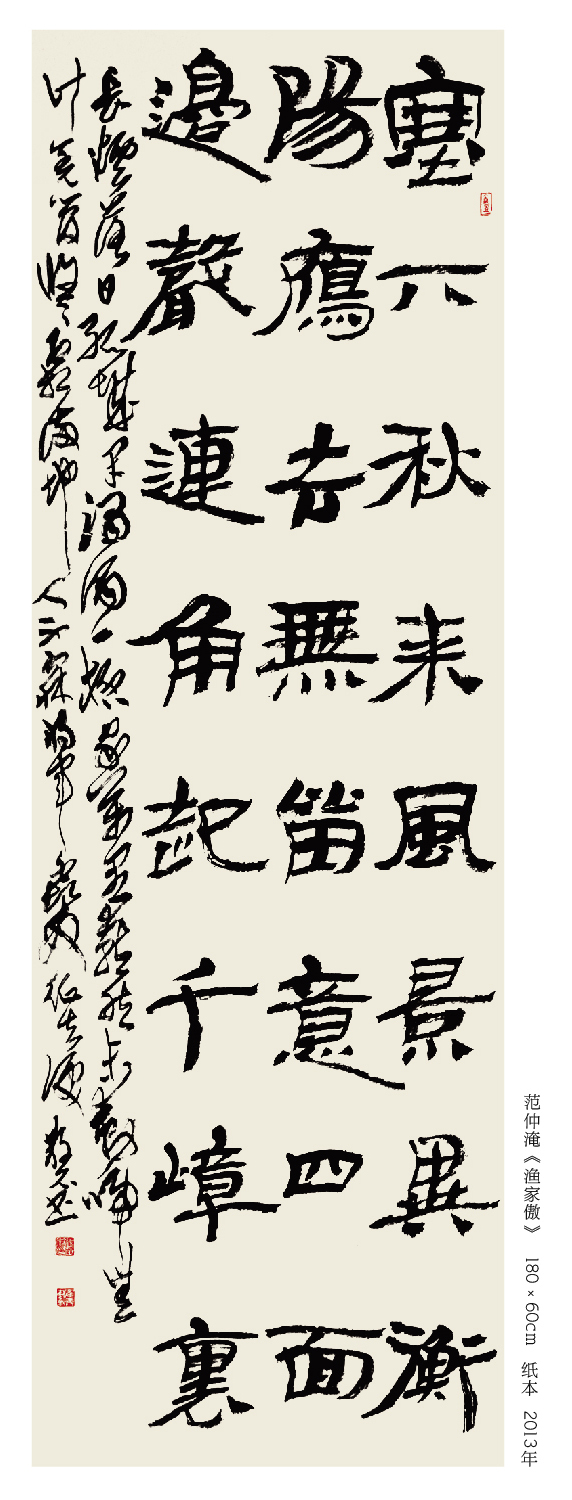 塞下秋来風景異衡
陽鴈去無留意四面
邊聲連角起千嶂裏
長煙落日孤城闭濁酒一杯家萬里燕然未勒歸無
计羌管悠々霜滿地人不寐将軍白髮征夫淚
范仲淹《渔家傲》 180×60cm 纸本 2013年